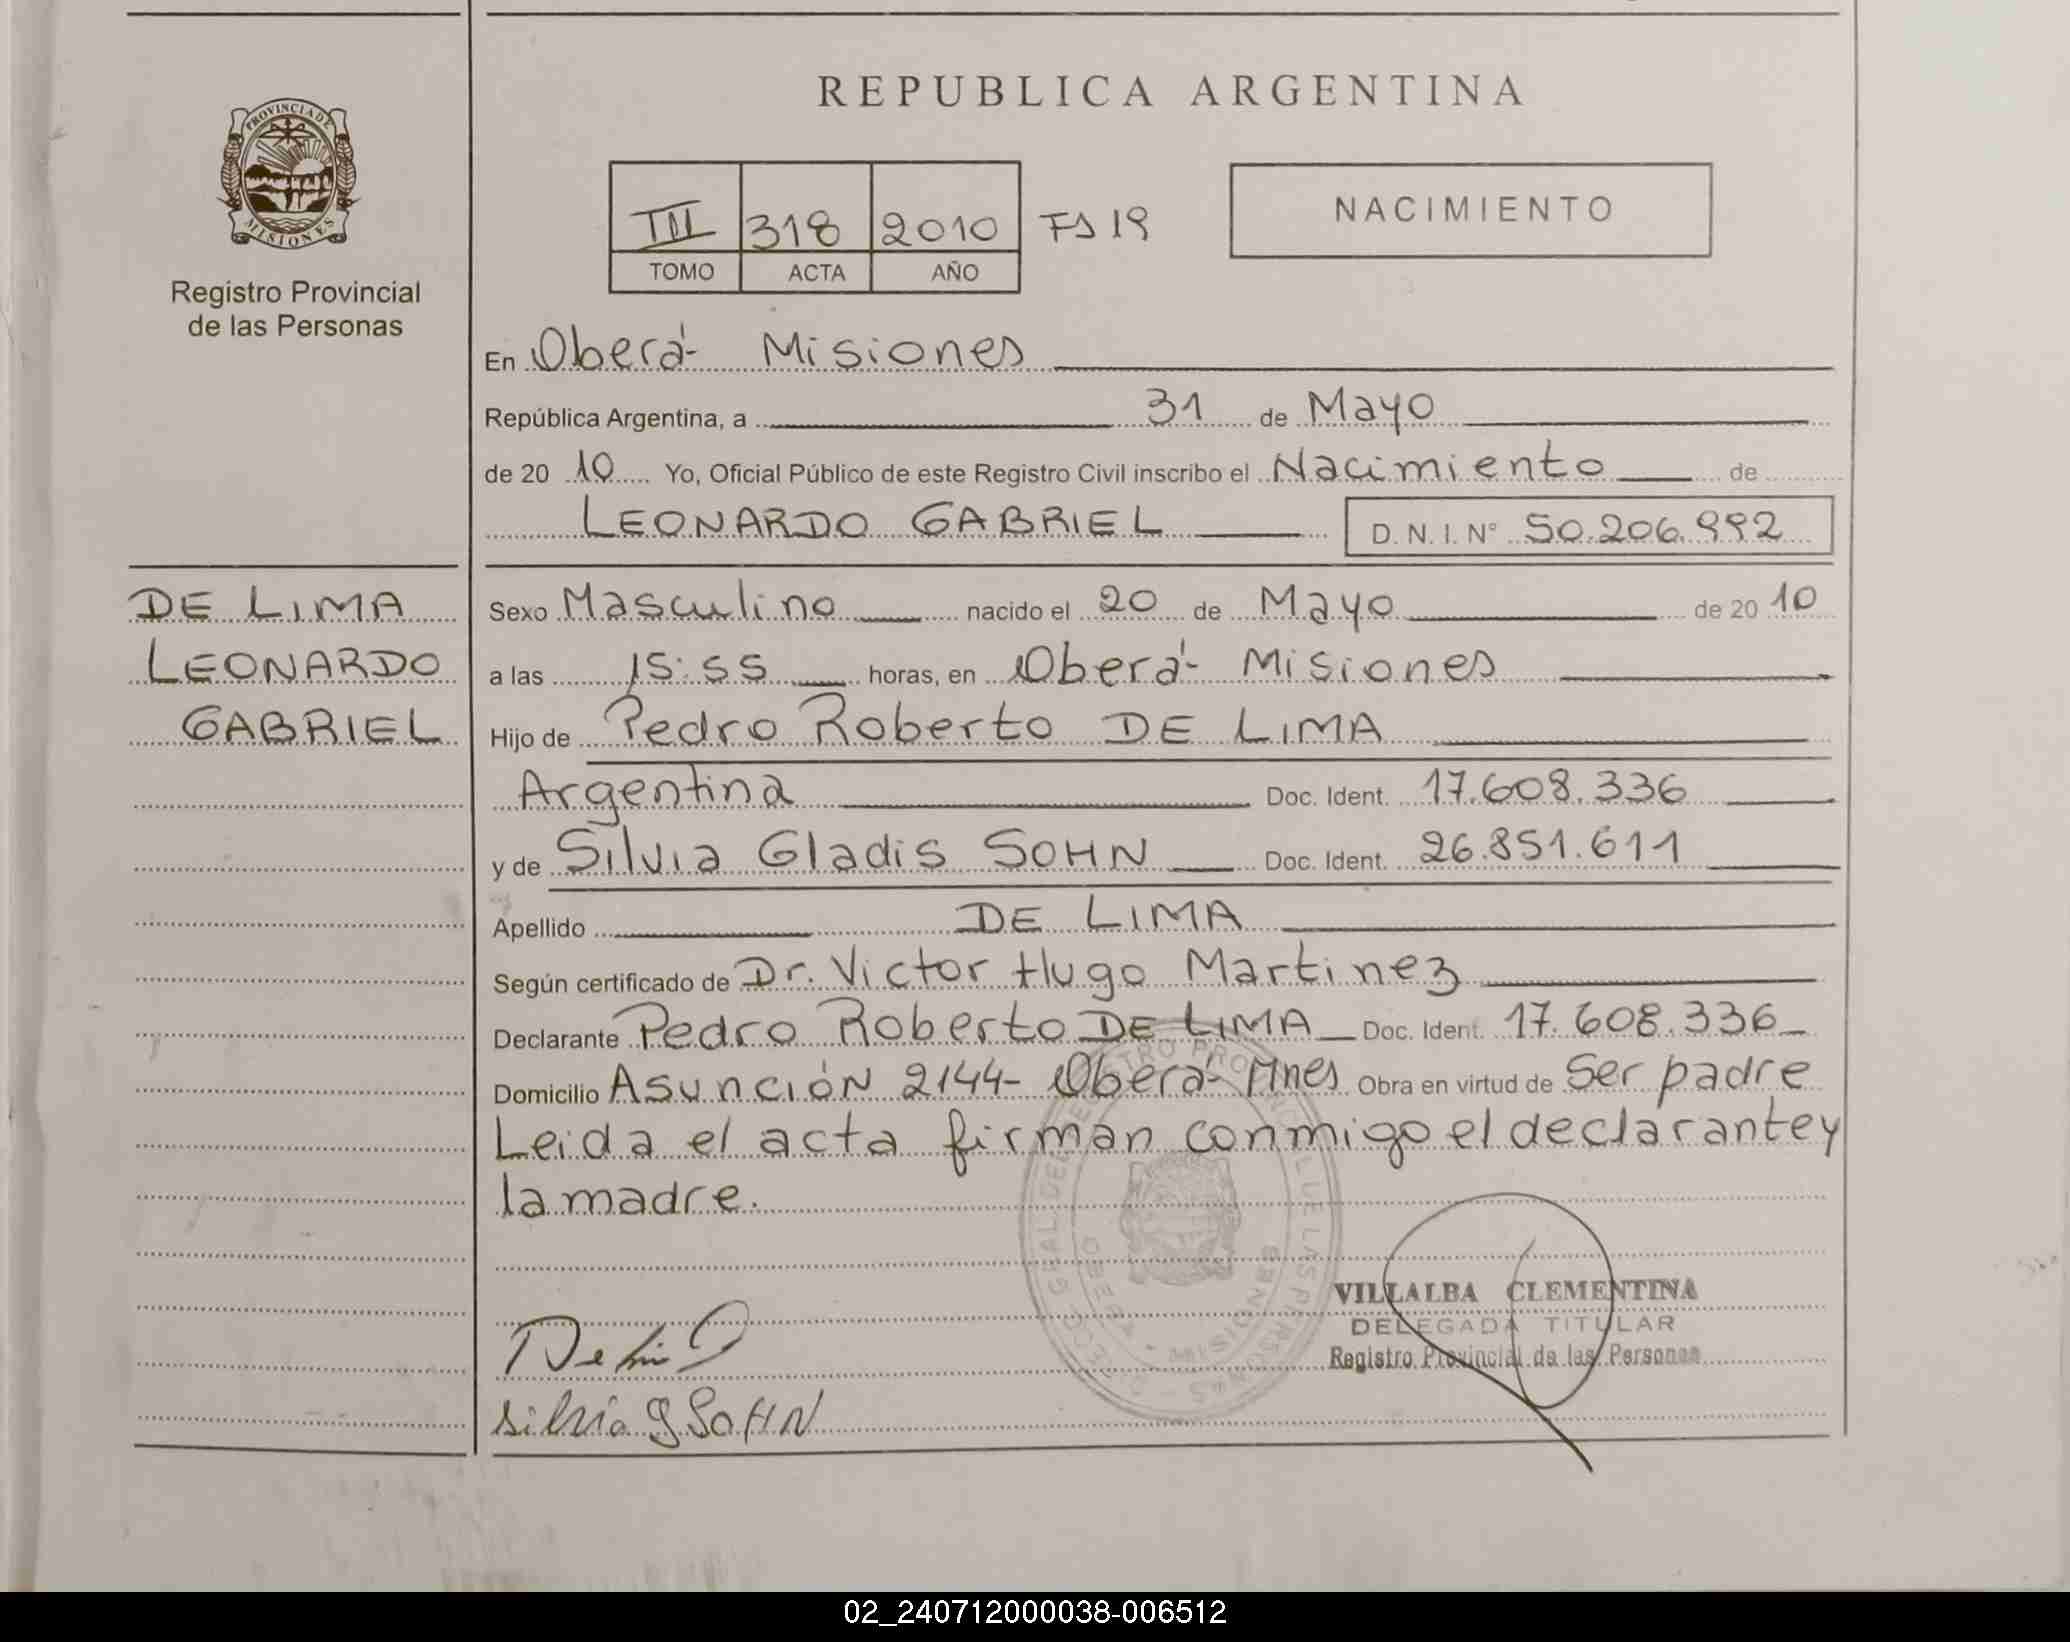 REPUBLICA ARGENTINA
PROVINCIA DE MISIONES
Registro Provincial
de las Personas
III 318 2010 Fs 19
TOMO ACTA AÑO
NACIMIENTO
En Oberá- Misiones
República Argentina, a 31 de Mayo
de 20 10 Yo, Oficial Público de este Registro Civil inscribo el Nacimiento de
LEONARDO GABRIEL D. N. I. N° 50.206.992
DE LIMA
LEONARDO
GABRIEL
Sexo Masculino nacido el 20 de Mayo de 20 10
a las 15:55 horas, en Oberá- Misiones
Hijo de Pedro Roberto DE LIMA
Argentina Doc. Ident. 17.608.336
y de Silvia Gladis SOHN Doc. Ident. 26.851.611
Apellido DE LIMA
Según certificado de Dr. Victor Hugo Martinez
Declarante Pedro Roberto DE LIMA Doc. Ident. 17.608.336
Domicilio Asunción 2144- Oberá- Mnes Obra en virtud de Ser padre
Leida el acta firman conmigo el declarante y
la madre.
VILLALBA CLEMENTINA
DELEGADA TITULAR
Registro Provincial de las Personas
Silvia g SOHN
02_240712000038-006512